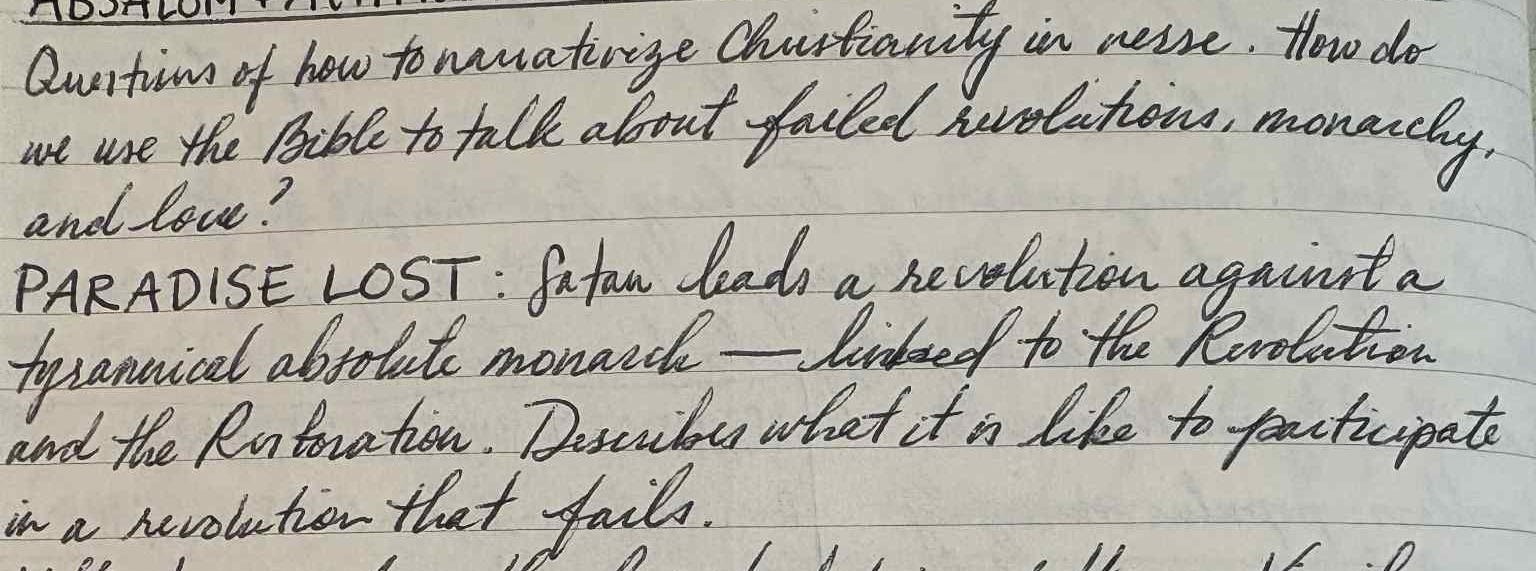 ABSALOM +
Questions of how to narrativize Christianity in verse. How do
we use the Bible to talk about failed revolutions, monarchy,
and love?
PARADISE LOST: Satan leads a revolution against a
tyrannical absolute monarch — linked to the Revolution
and the Restoration. Describes what it is like to participate
in a revolution that fails.